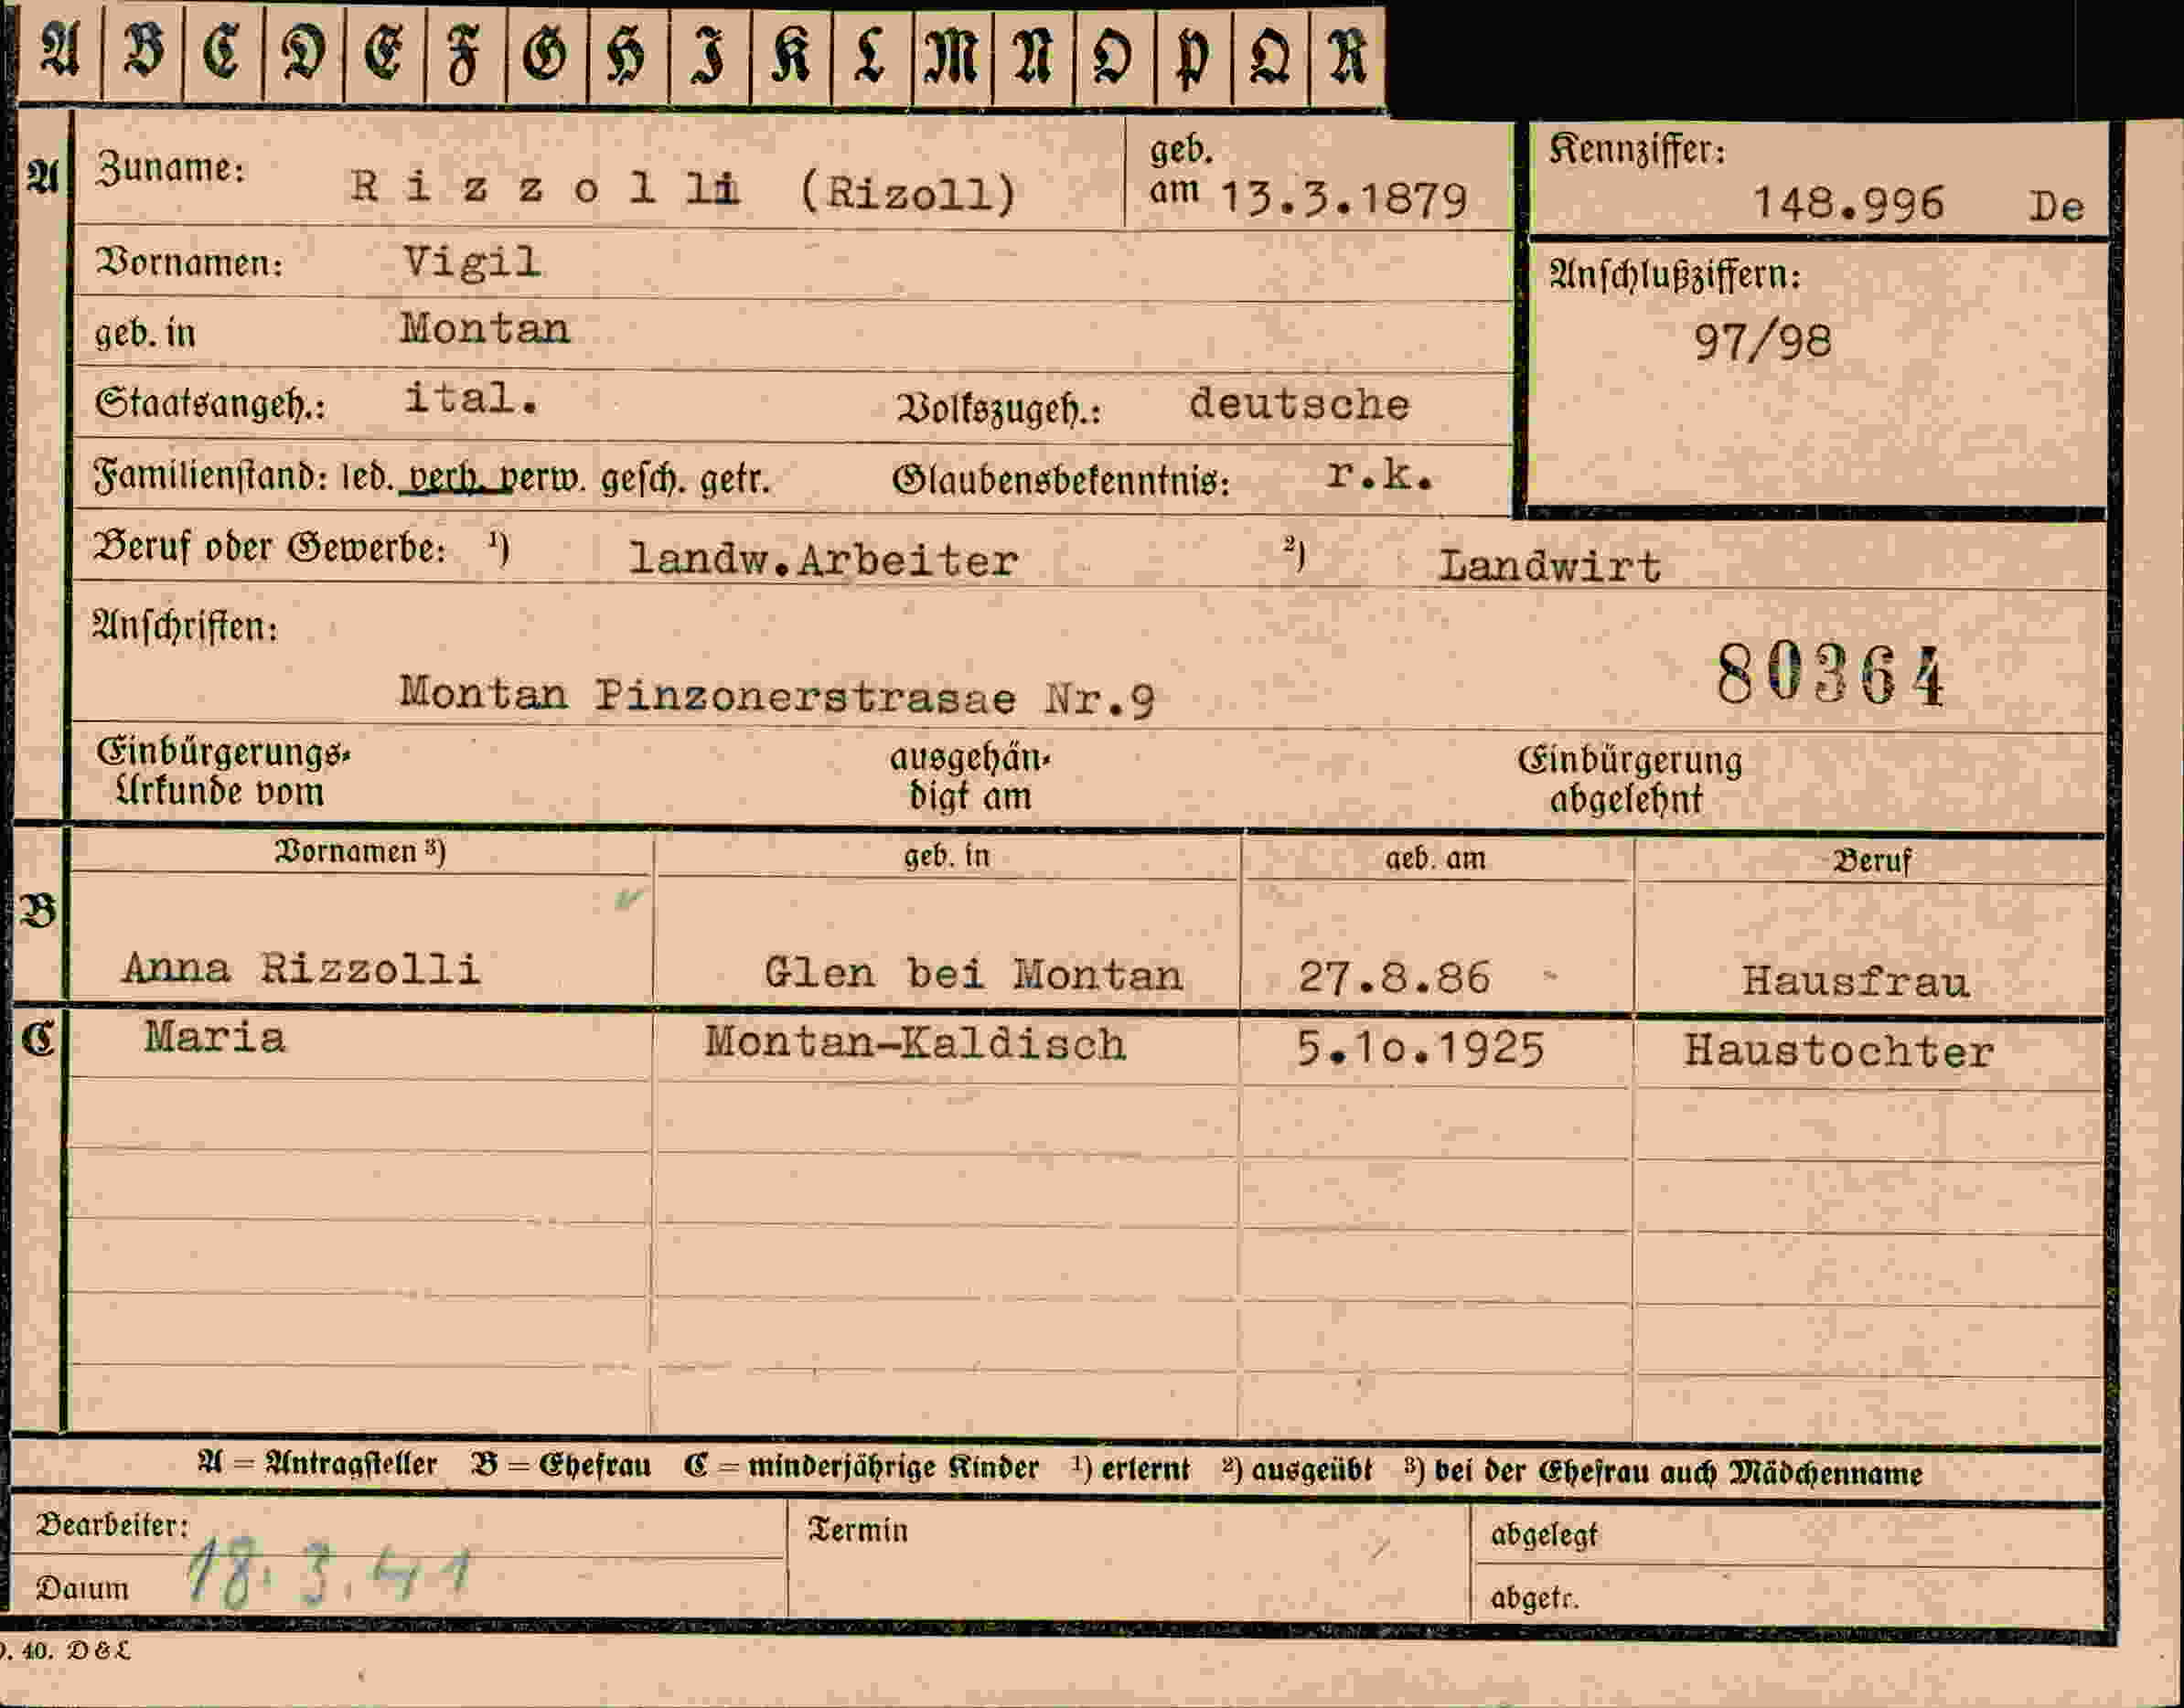 A B C D E F G H I K L M N O P Q R
A Zuname: Rizzolli (Rizoll) geb. am 13.3.1879
Kennziffer: 148.996 De
Vornamen: Vigil
Anschlußziffern:
geb. in Montan
97/98
Staatsangeh.: ital. Volkszugeh.: deutsche
Familienstand: led. verh. verw. gesch. getr. Glaubensbekenntnis: r.k.
Beruf oder Gewerbe: ¹) landw.Arbeiter ²) Landwirt
Anschriften:
80364
Montan Pinzonerstrasae Nr.9
Einbürgerungs- ausgehän- Einbürgerung
Urkunde vom digt am abgelehnt
Vornamen ³) geb. in geb. am Beruf
B
Anna Rizzolli Glen bei Montan 27.8.86 - Hausfrau
C Maria Montan-Kaldisch 5.10.1925 Haustochter
A = Antragsteller B = Ehefrau C = minderjährige Kinder ¹) erlernt ²) ausgeübt ³) bei der Ehefrau auch Mädchenname
Bearbeiter: Termin abgelegt
Datum 18.3.41 abgetr.
. 40. D & L